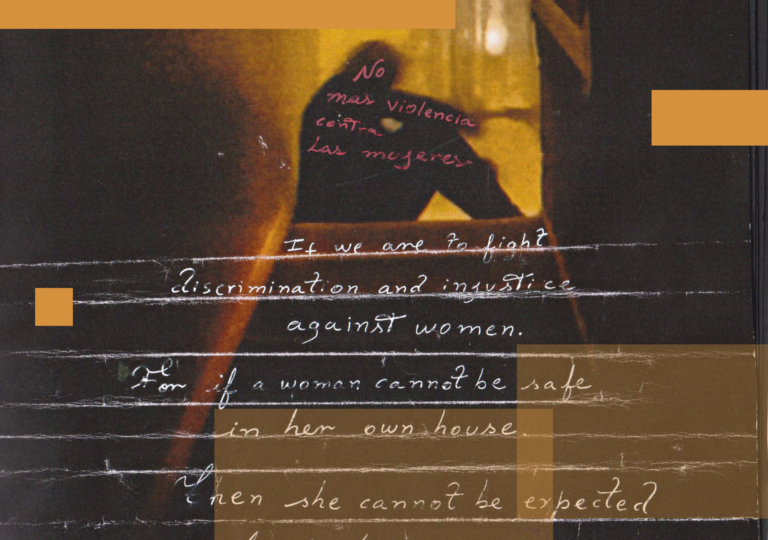 No
mas violencia
contra
Las mujeres.
If we are to fight
discrimination and injustice
against women.
For if a woman cannot be safe
in her own house
Then she cannot be expected